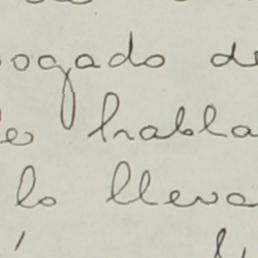 ogado de
habla
lo lleva